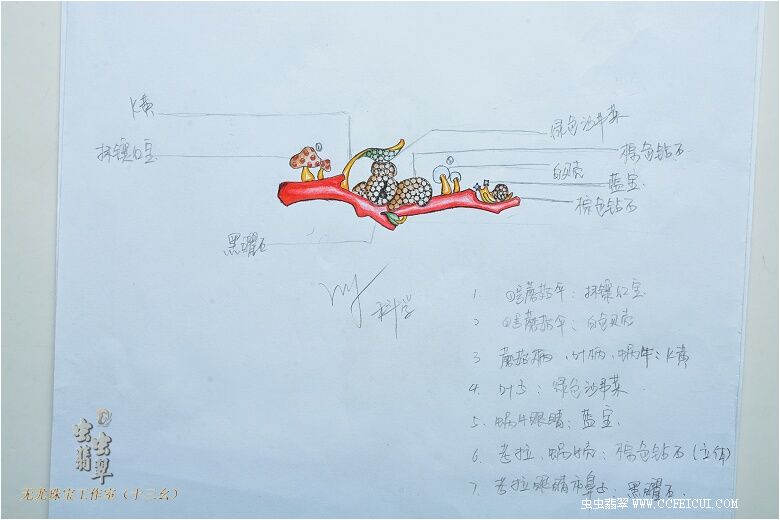 K黄
抹镶红宝
黑曜石
绿色沙弗莱
棕色钻石
白贝壳
蓝宝
棕色钻石
①
②
科学
1. ①号蘑菇伞：抹镶红宝
2. ②号蘑菇伞：白色贝壳
3. 蘑菇柄、叶柄、蜗牛：K黄
4. 叶子：绿色沙弗莱
5. 蜗牛眼睛：蓝宝
6. 考拉、蜗牛壳：棕色钻石(立体)
7. 考拉眼睛和鼻子：黑曜石.
虫虫翡翠
无尤珠宝工作室（十三幺）
虫虫翡翠 WWW.CCFEICUI.COM